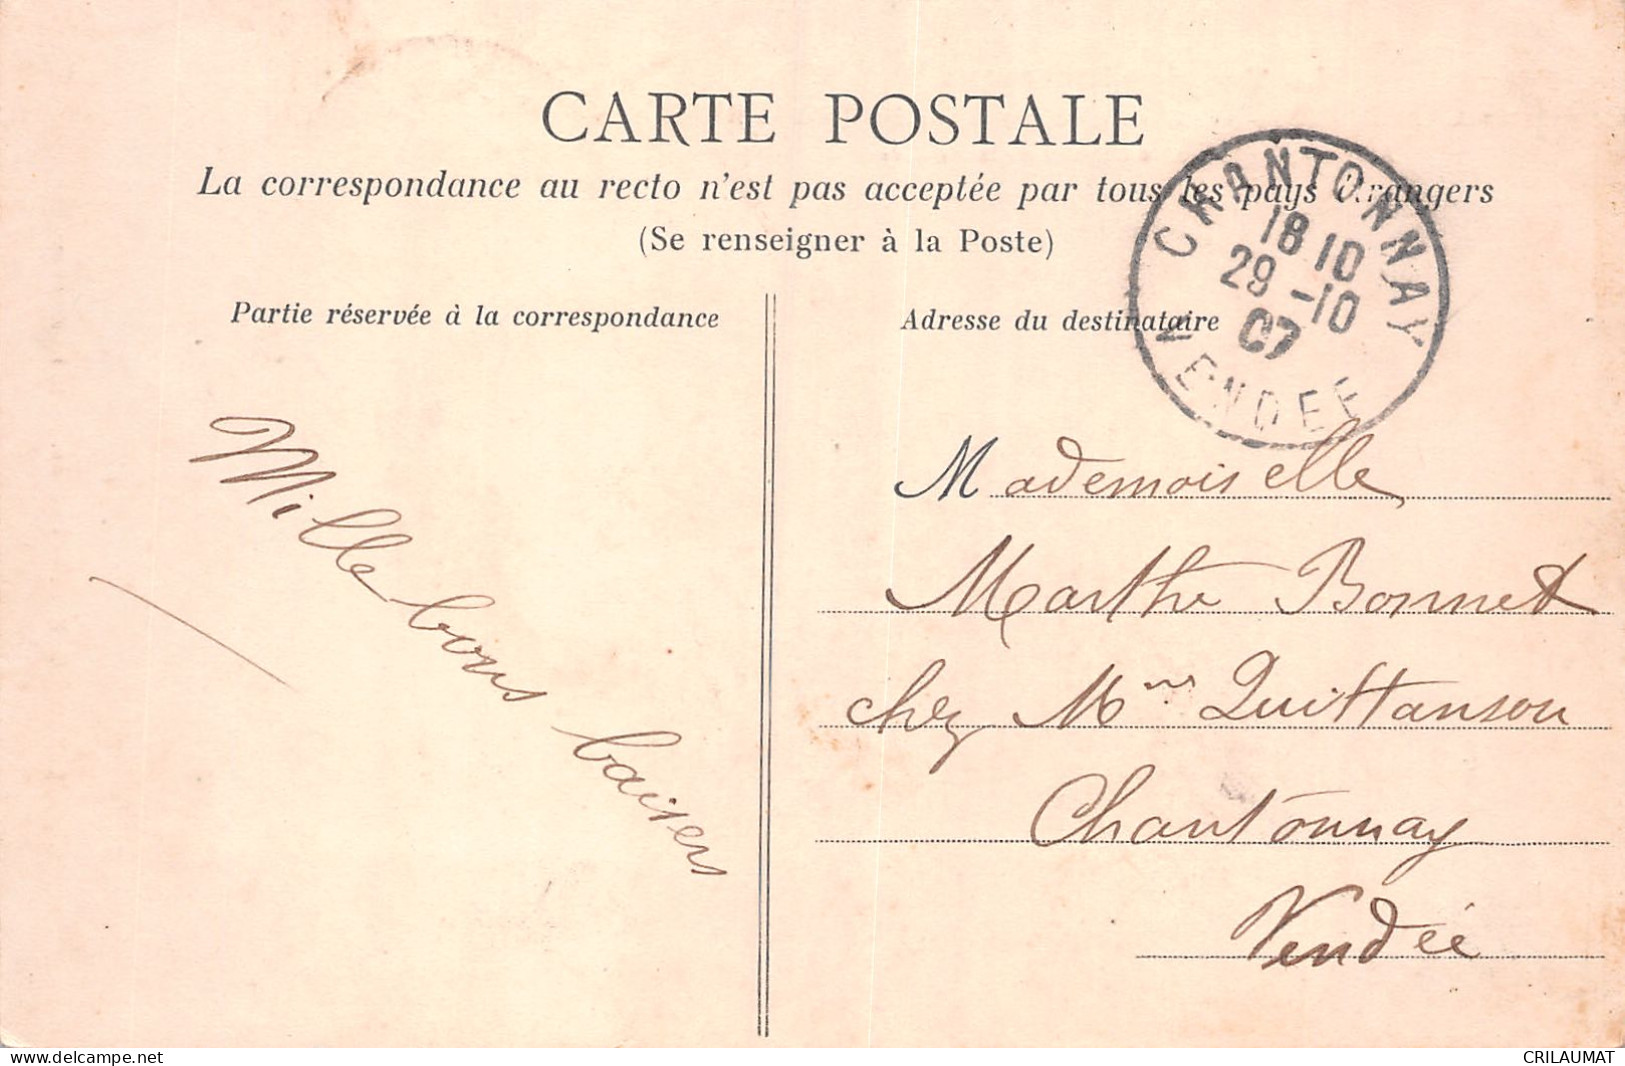 CARTE POSTALE
La correspondance au recto n'est pas acceptée par tous les pays étrangers
(Se renseigner à la Poste)
Partie réservée à la correspondance
Adresse du destinataire
CHANTONNAY
18 10
29 -10
07
VENDEE
Mille bons baisers
Mademoiselle
Marthe Bonnet
chez Mme Quittanson
Chantonnay
Vendée
www.delcampe.net
CRILAUMAT